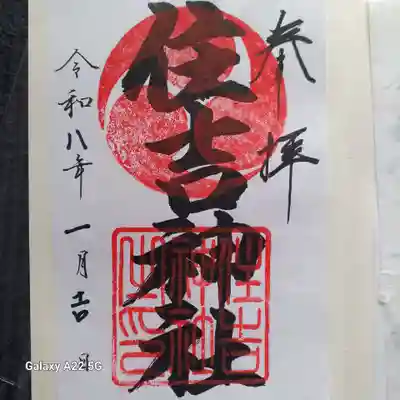 参拝
住吉神社
令和八年一月吉日
住吉神社之印
Galaxy A22 5G